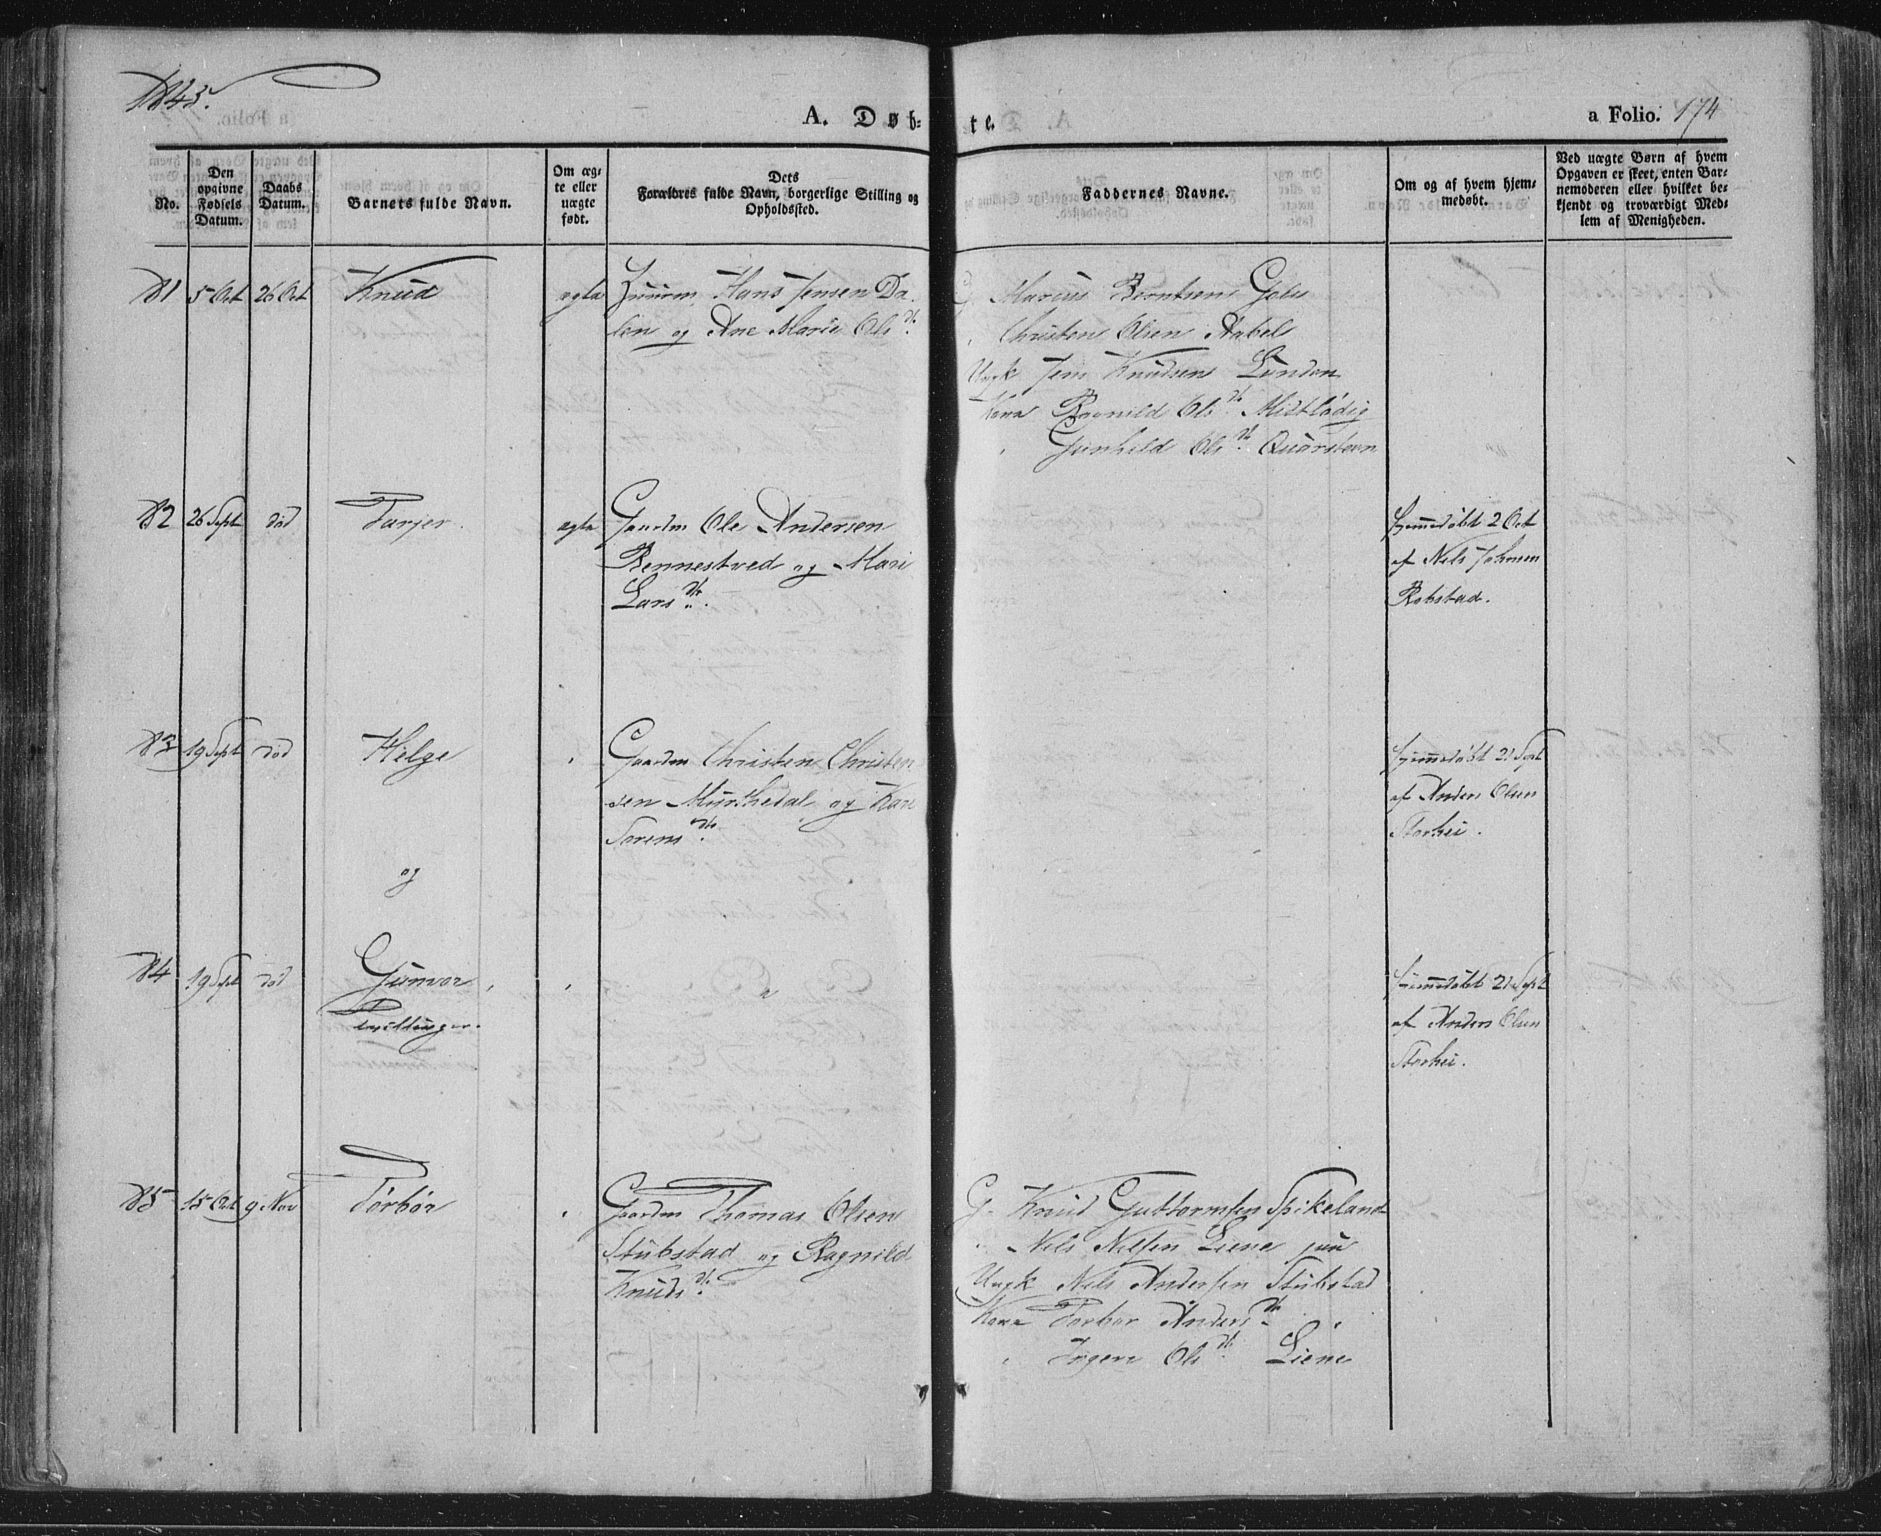 1845.
A. Døb-
te.
a Folio. 174
No.
Den opgivne Fødsels Datum.
Daabs Datum.
Barnets fulde Navn.
Om ægte eller uægte født.
Dets Forældres fulde Navn, borgerlige Stilling og Opholdssted.
Faddernes Navne.
Om og af hvem hjemmedøbt.
Ved uægte Børn af hvem Opgaven er skeet, enten Barnemoderen eller hvilket bekjendt og troværdigt Medlem af Menigheden.
81 5 Oct 26 Oct Knud ægte Huusm Hans Jensen Da-
len og Ane Marie Olsdr.
G. Marius Berntsens
" Christen Olsen Aabel
Ungk Jens Knudsens Lunden
Kone Ragnild Olsdr.
" Gunhild Olsdr. Quarsten
82 26 Sept død Tarjer. ægte Gaardm Ole Andersen
Rennestved og Mari
Larsdr.
Hjemmedøbt 2 Oct
af Nils Johnsen
Robstad.
83 19 Sept død Helge " Gaardm Christen Christen
sen Myrthedal og Kari
Sorensdr.
Hjemmedøbt 21 Sept
af Anders Olsen
Storhei.
og
84 19 Sept død Gunvor " "
Tvillinger.
Hjemmedøbt 21 Sept
af Anders Olsen
Storhei.
85 15 Oct 9 Nov Torbor " Gaardm Thomas Olsen
Stubstad og Ragnild
Knudsdr.
G. Knud Guttormsen Spikeland
" Nils Nilsen Liene jun
Ungk Nils Andersen Stubstad
Kone Torbor Andersdr. "
" Ingen Olsdr. Liene